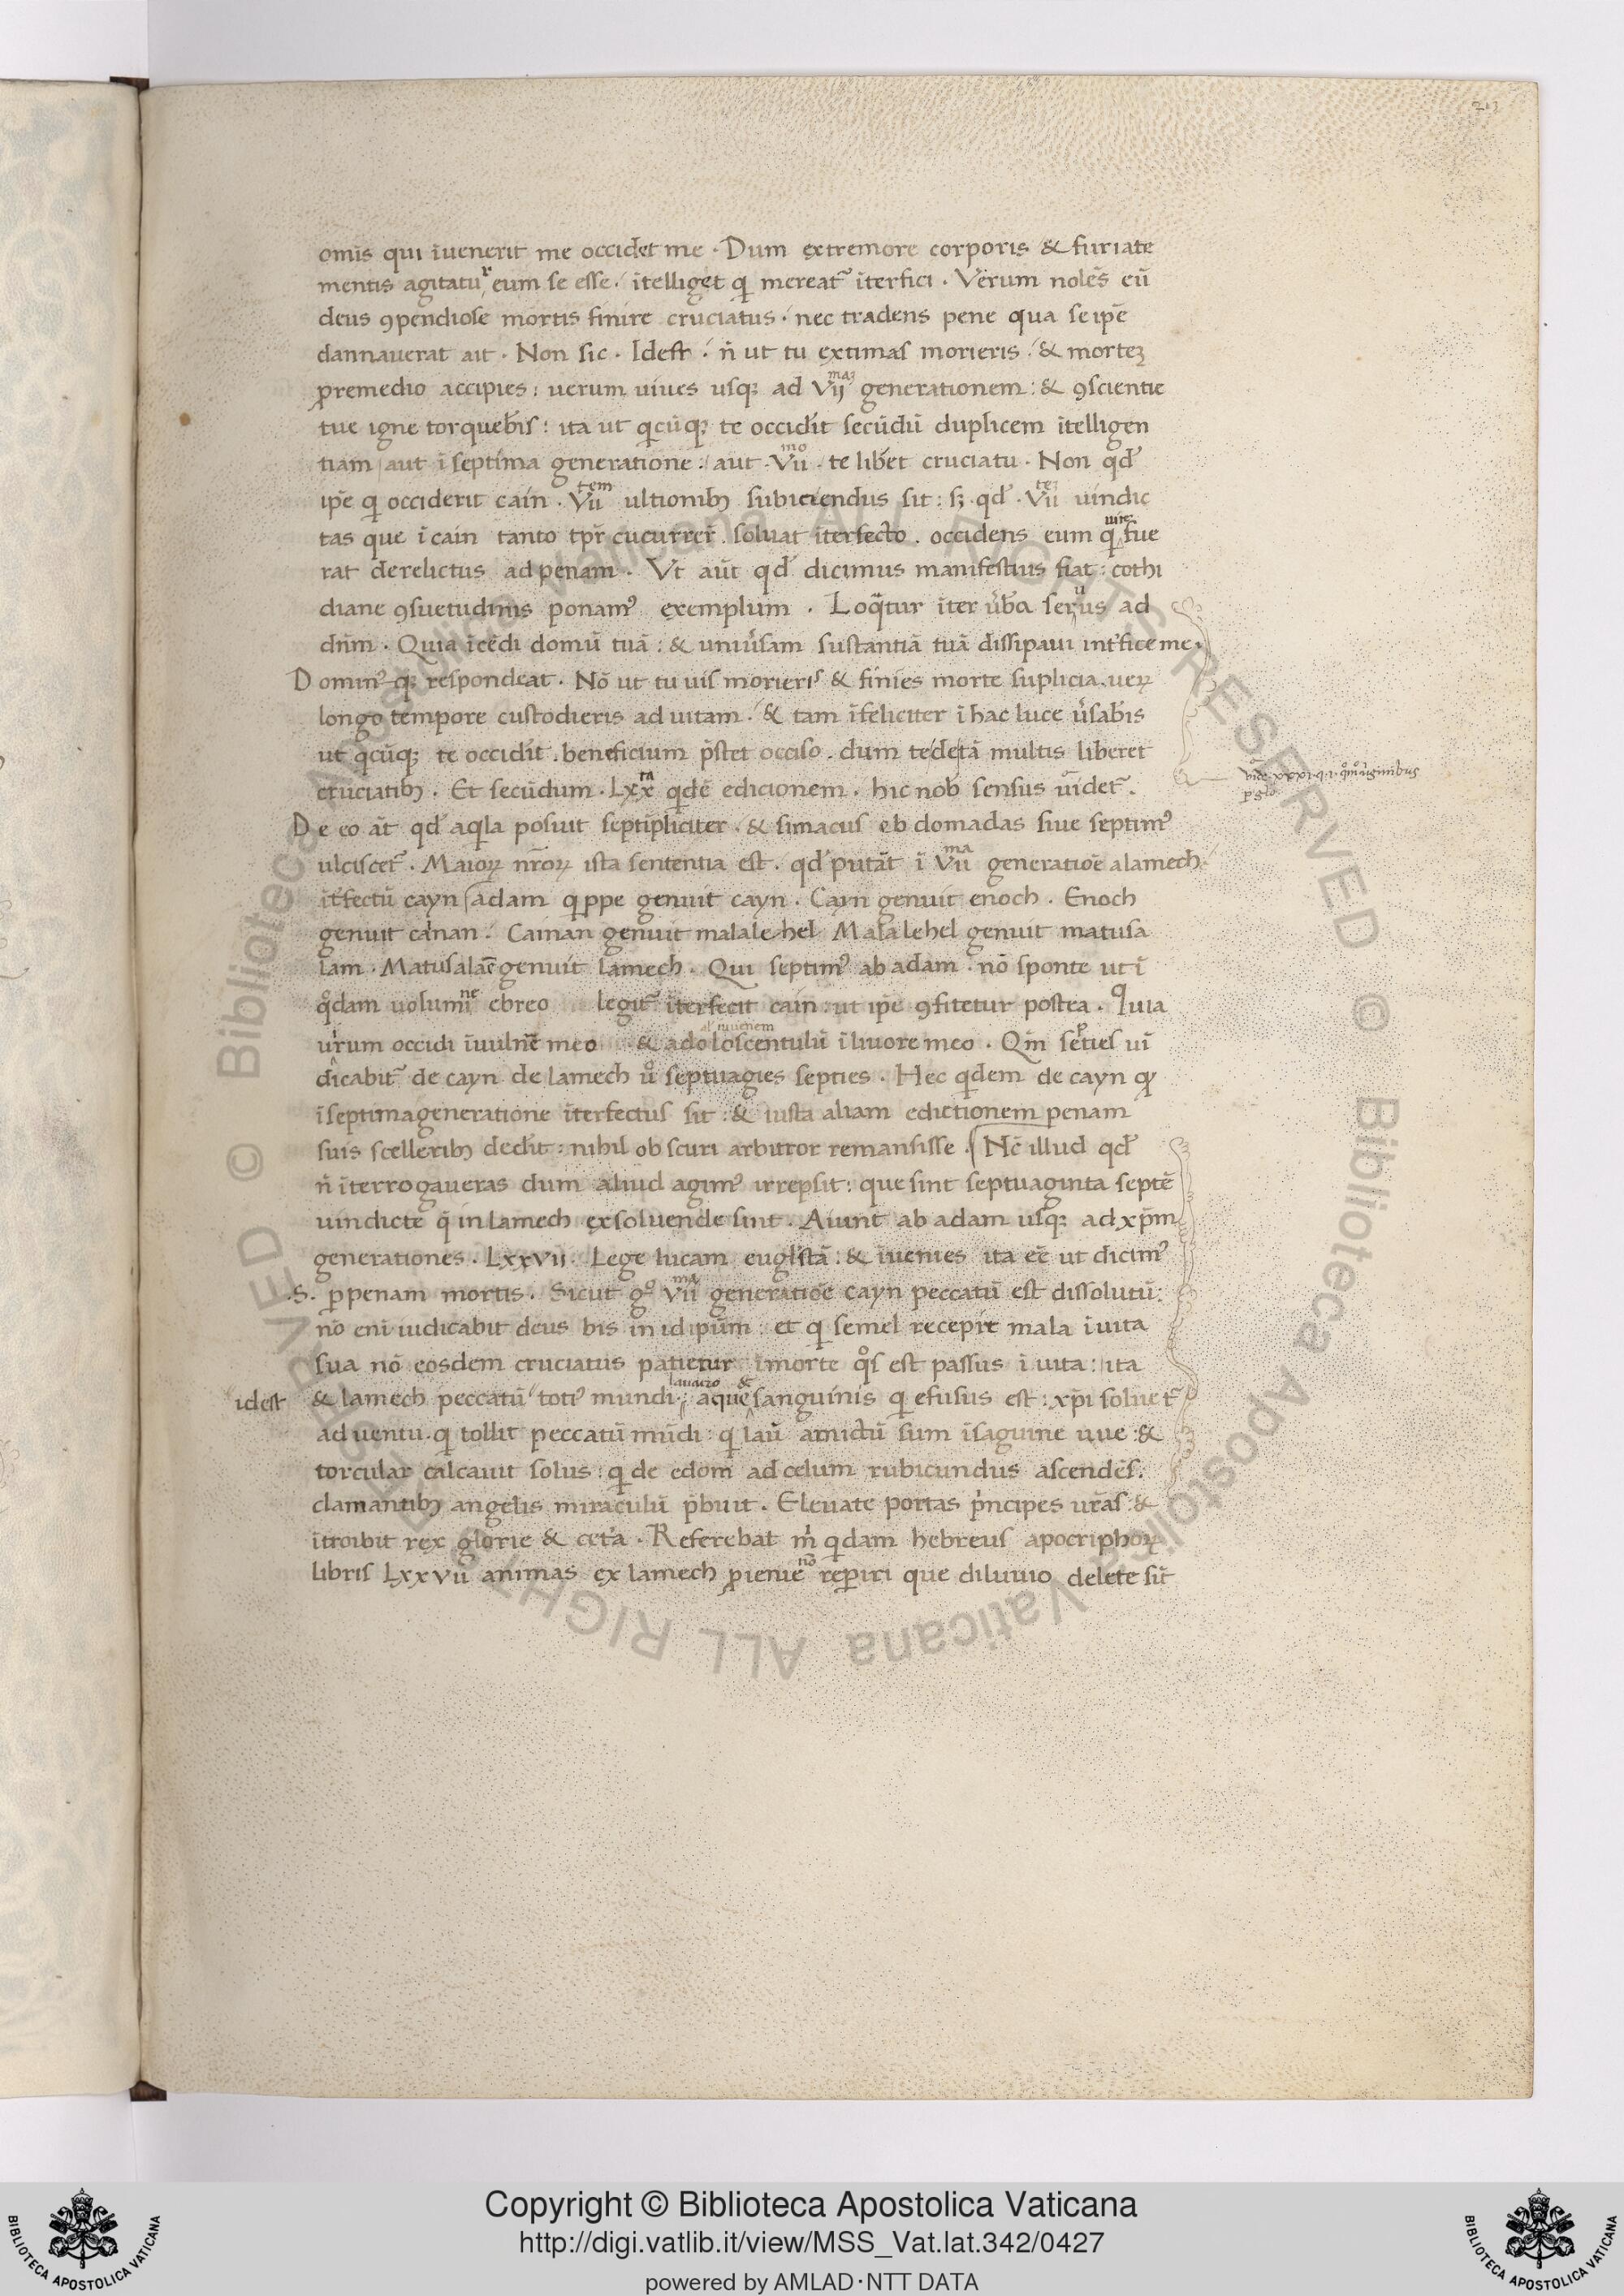 213
omīs qui īuenerit me occidet me · Dum extremore corporis & furiate
mentis agitatur eum se esse · ītelliget q mereat᷑ īterfici · Verum nolēs eū
deus ꝯpendiose mortis finire cruciatus · nec tradens pene qua se ipē
dannauerat ait · Non sic · Idest · n̄ ut tu extimas morieris · & mortez
ꝓremedio accipies : uerum uiues usqꝫ ad Vijmaꝫ generationem : & ꝯscientie
tue igne torqueb̄is : ita ut qcūqꝫ te occidit secūdū duplicem ītelligen
tiam aut ī septima generatione : aut · Viimo · te lib̄et cruciatu · Non qd̄
ipē q occiderit cain · Viitem ultionibꝫ subiciendus sit : sꝫ qd̄ · Viiteꝫ uindic
tas que ī cain tanto tpr̄ cucurrer̄ · soluat īterfecto · occidens eum q uite fue
rat derelictus ad penam · Vt aūt qd̄ dicimus manifestius fiat : cothi
diane ꝯsuetudinis ponamꝰ exemplum · Loq̄tur īter ūb̄a seruus ad
dn̄m · Quia īcēdi domū tuā : & uniūsam sustantiā tuā dissipaui int̄fice me ·
Dominꝰ qꝫ respondeat · Nō ut tu uis morieris & finies morte suplicia · ueꝝ
longo tempore custodieris ad uitam · & tam īfeliciter ī hac luce ūsab̄is
ut qcūqꝫ te occidit · beneficium p̄stet occiso · dum te de tā multis liberet
cruciatibꝫ · Et secūdum · Lxxta qdē edicionem · hic nob̄ sensus uīdet᷑ ·
vide xxxi q i q̄m̄ uirginibus
De eo āt qd̄ aqla posuit septīpliciter · & simacus eb domadas siue septimꝰ
ulciscet᷑ · Maioꝝ nr̄oꝝ ista sententia est · qd̄ putāt ī Viima generatiōe a lamech
īt̄fectū cayn adam qppe genuit cayn · Cayn genuit enoch · Enoch
genuit cainan · Cainan genuit malalehel Malalehel genuit matusa
lam · Matusalaē genuit lamech · Qui septimꝰ ab adam · nō sponte ut ī
qdam uolumine ebreo legit᷑ īterfecit cain : ut ipē ꝯfitetur postea · Quia
uirum occidi īuulnē meo & adoloscentulū ī liuore meo · Qm̄ septies uī
al' iuuenem
dicabit᷑ de cayn de lamech ū septuagies septies · Hec qdem de cayn qꝫ
ī septima generatione īterfectus sit : & iusta aliam edictionem penam
suis scelleribꝫ dedit : nihil ob scuri arbitror remansisse · Nc̄ illud qd̄
n̄ īterrogaueras dum aliud agimꝰ irrepsit : que sint septuaginta septē
uindicte q̄ in lamech exsoluende sint · Aiunt ab adam usqꝫ ad xp̄m
generationes · Lxxvii · Lege lucam euglistā : & īuenies ita eē ut dicimꝰ
·S· ꝑ penam mortis · Sicut gͦ Viima generatiōe cayn peccatū est dissolutū :
nō enī iudicabit deus bis in id ipūm : et q semel recepit mala ī uita
sua nō eosdem cruciatus patietur ī morte qos est passus ī uita : ita
idest & lamech peccatū totiꝰ mundi · lauacro aque & sanguinis q efusus est : xp̄i soluet᷑
ad uentu · q tollit peccatū mūdi : q lauī amictū sum ī saguine uue : &
torcular calcauit solus : q de edom ad celum rubicundus ascendēs ·
clamantibꝫ angelis miraculū p̄buit · Eleuate portas p̄ncipes ur̄as · &
ītroibit rex glorie & cet̄a · Referebat m̄ qdam hebreus apocriphoꝝ
libris Lxxvii animas ex lamech ꝓienie nō reꝑiri que diluuio delete sīt
Copyright © Biblioteca Apostolica Vaticana
http://digi.vatlib.it/view/MSS_Vat.lat.342/0427
powered by AMLAD·NTT DATA
BIBLIOTECA APOSTOLICA VATICANA
BIBLIOTECA APOSTOLICA VATICANA
© Biblioteca Apostolica Vaticana ALL RIGHTS RESERVED © Biblioteca Apostolica Vaticana ALL RIGHTS RESERVED